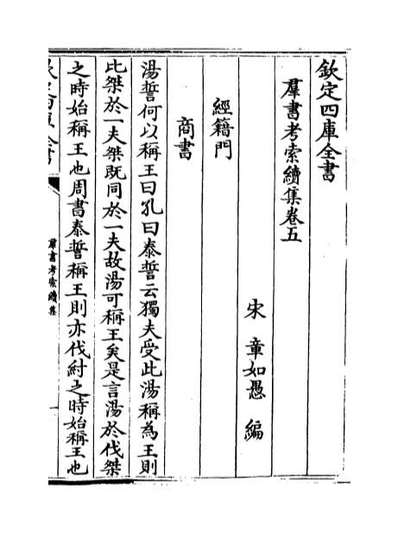 欽定四庫全書
羣書考索續集卷五
宋 章如愚 編
經籍門
商書
湯誓何以稱王曰孔曰泰誓云獨夫受此湯稱為王則
此桀於一夫桀既同於一夫故湯可稱王矣是言湯於伐桀
之時始稱王也周書泰誓稱王則亦伐紂之時始稱王也
欽定四庫全書
羣書考索續集
一